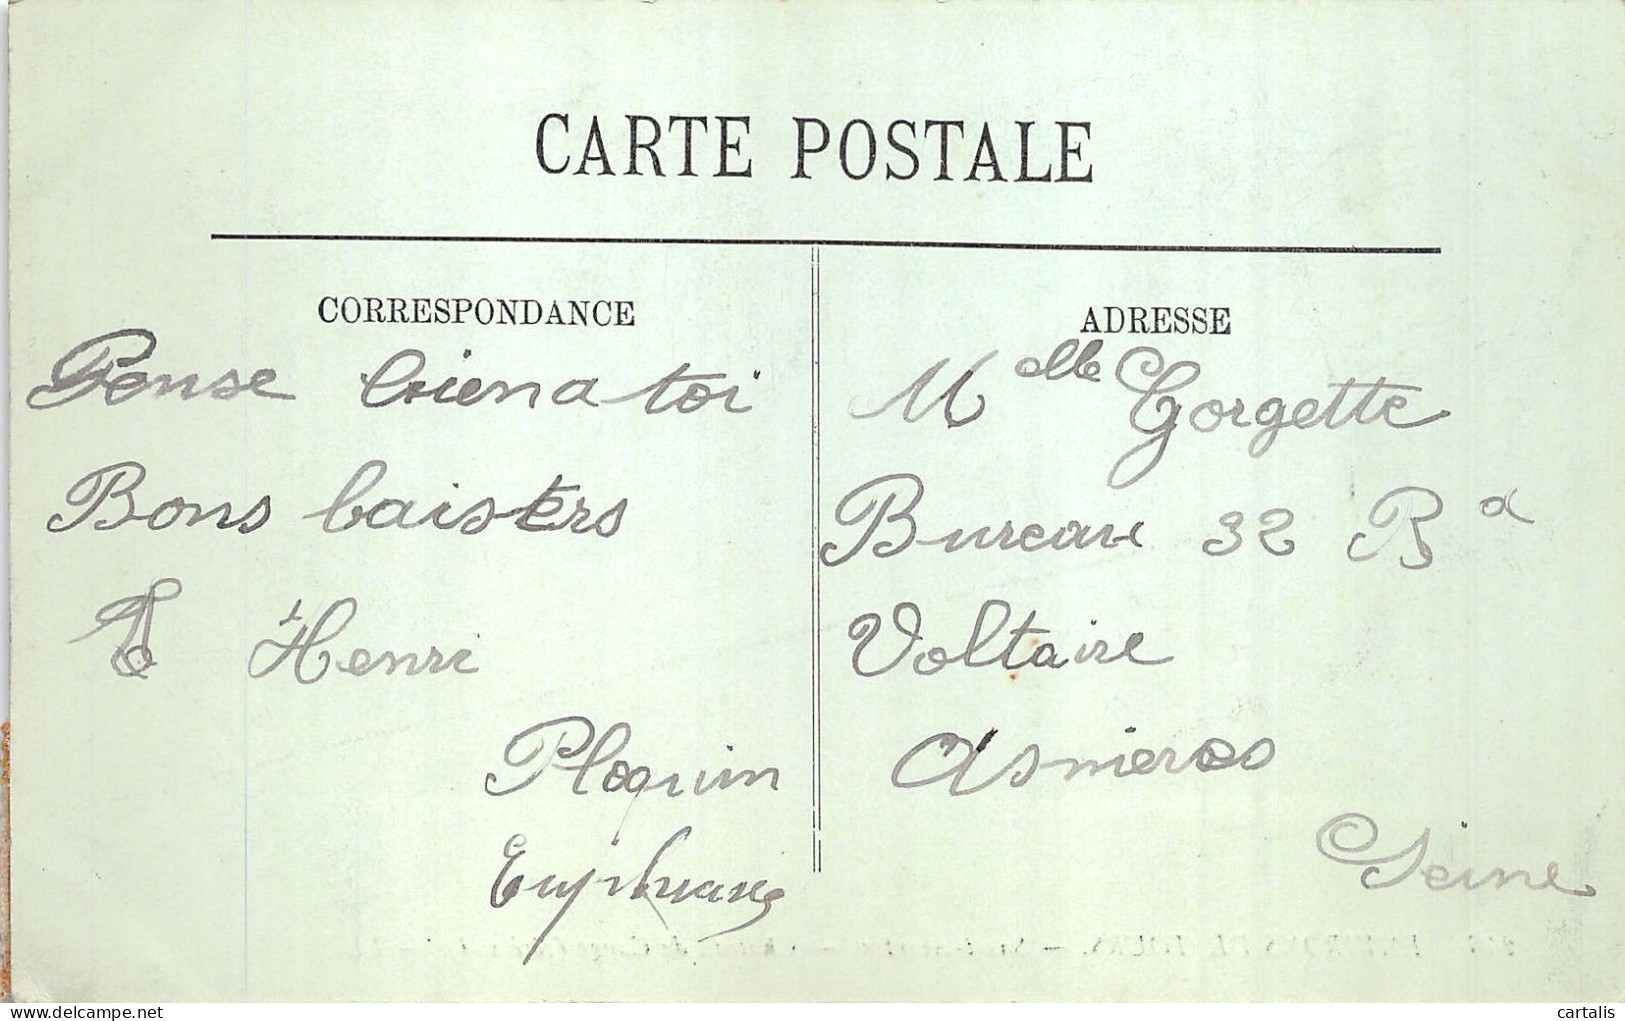 CARTE POSTALE
CORRESPONDANCE
Pense bien a toi
Bons baisers
Henri
Ploquin
ADRESSE
Melle Gorgette
Bureau 32 Bd
Voltaire
Asnieres
Seine
cartalis